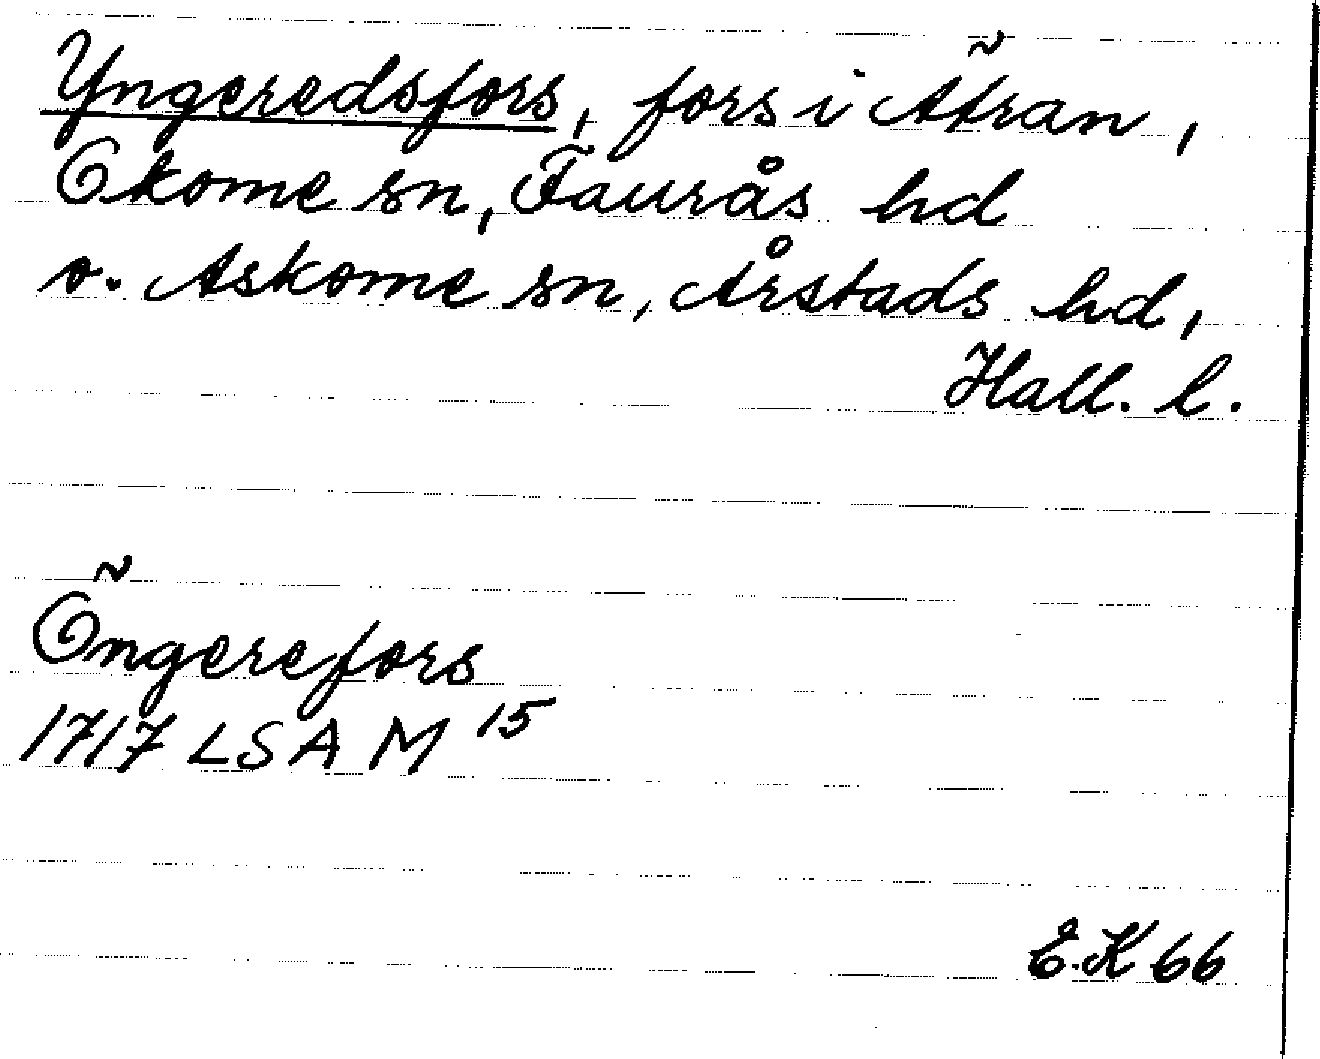 Yngeredsfors, fors i Ätran,
Okome sn, Faurås hd
o. Askome sn, Årstads hd,
Hall. l.
Öngerefors
1717 LSA M 15
E.K 66